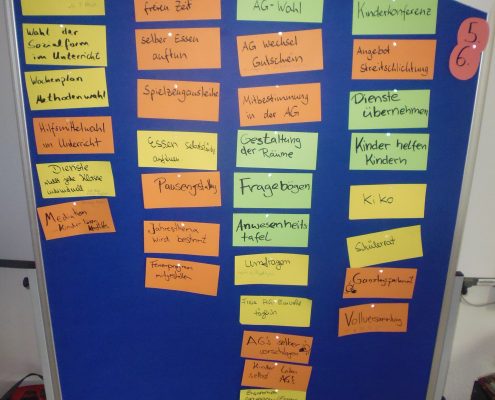 Wahl der
Sozialform
im Unterricht
Wochenplan
Methodenwahl
Hilfsmittelwahl
im Unterricht
Dienste
individuell
Mediation
Kinder lösen
freien Zeit
selber Essen
auftun
Spielzeugausleihe
Essen
Pausengestaltung
Jahresthema
wird bestimmt
Ferienprogramm
mitgestalten
AG-Wahl
AG Wechsel
Gutschein
Mitbestimmung
in der AG
Gestaltung
der Räume
Fragebögen
Anwesenheits
tafel
Umfragen
täglich
AG's selber
vorschlagen
Kinder leiten
selbst AG's
Kinderkonferenz
Angebot
Streitschlichtung
Dienste
übernehmen
Kinder helfen
Kindern
KiKo
Schülerrat
Ganztagsparlament
Vollversammlung
5.
6.